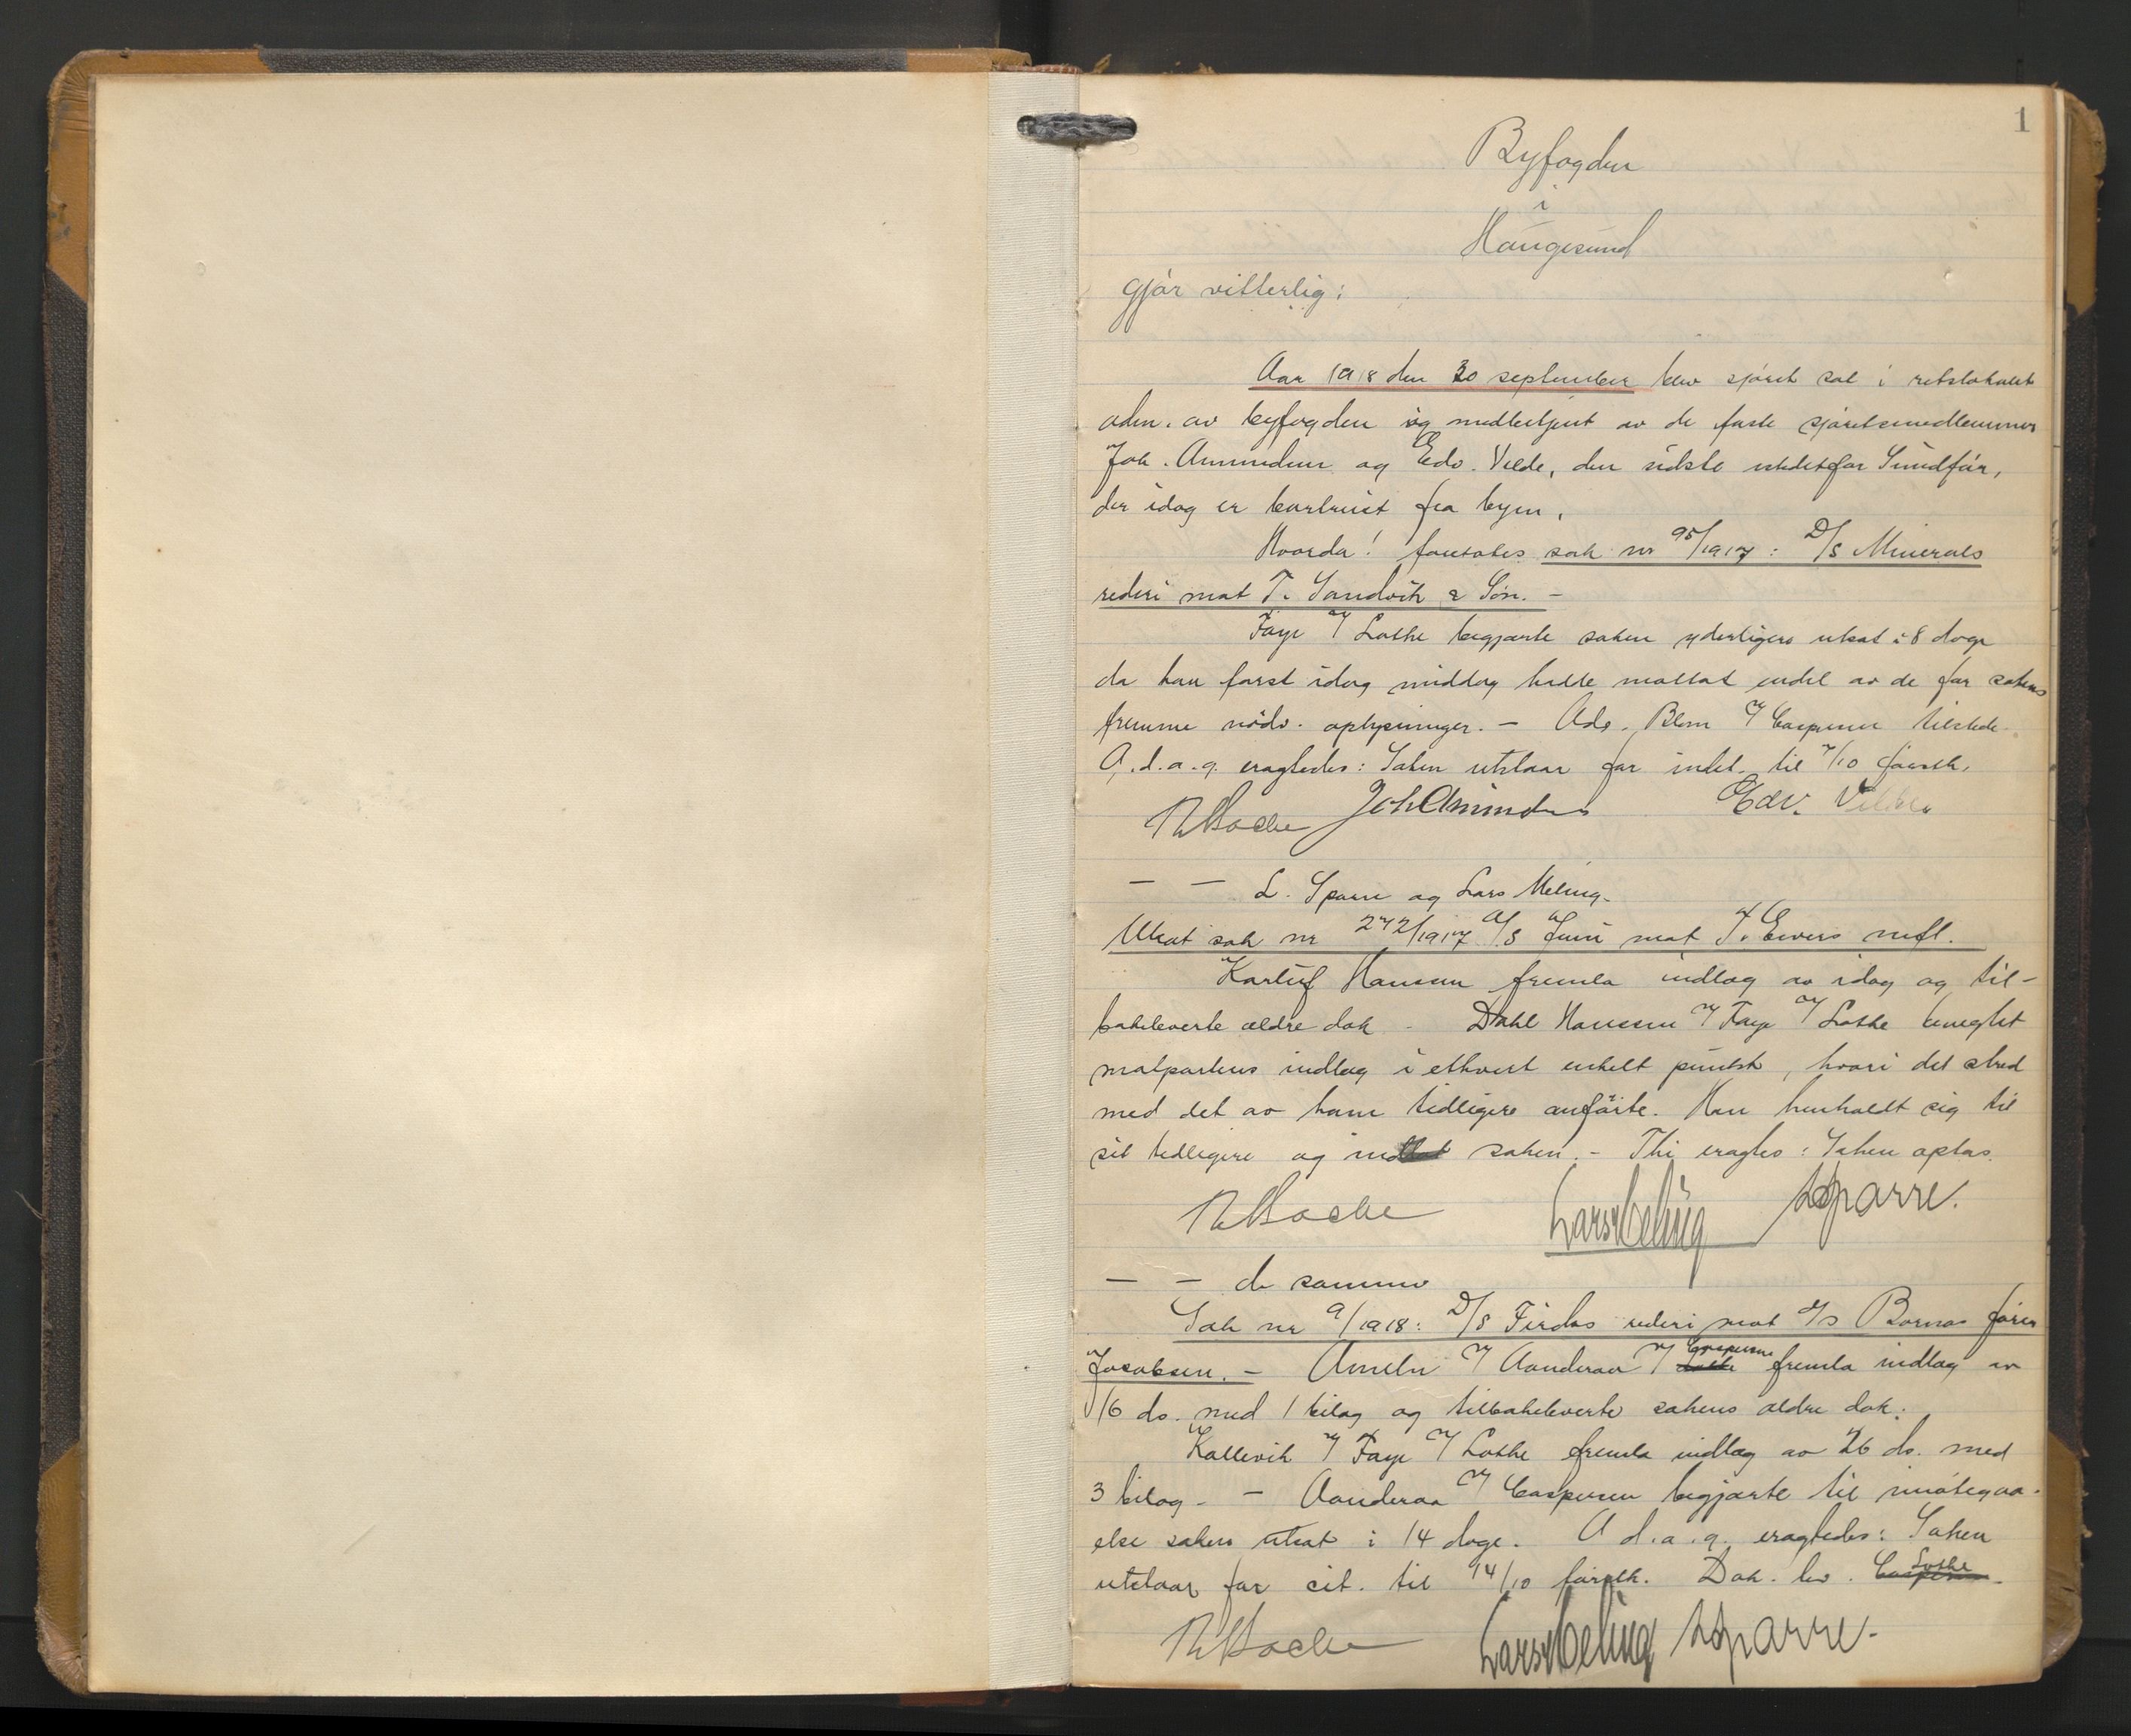 1
Byfogden
i
Haugesund
gjør vitterlig:
Aar 1918 den 30 september blev sjøret sat i retslokalet
adm. av byfogden og medbetjent av de faste sjøretsmedlemmer
Joh. Amundsen og Edv. Velde, den sidste istedetfor Sundfør,
der idag er bortreist fra byen.
Hvorda! foretokes sak nr 95/1917: D/S Minerals
rederi mot T. Sandvik & Søn. -
Faye / Lothe begjærte saken yderligere utsat i 8 dage
da han først idag middag hadde mottat endel av de for sakens
fremme nødv. oplysninger. - Adv. Blom / Caspersen tilstede.
A. d. a. g. eragtedes: Saken utstaar for indl. til 7/10 førstk.
Joh Amundsen Edv. Velde
— — L. Sparre og Lars Meling.
Utsat sak nr 272/1917 A/S Juni mot J. Ewers mfl.
Karluf Hansen fremla indlæg av idag og til-
bakeleverte ældre dok - Dahl Hanssen / Faye / Lothe benegtet
motpartens indlæg i ethvert enkelt punkt, hvori det stred
med det av ham tidligere anførte. Han henholdt sig til
sit tidligere og saken. - Thi eragtes: Saken optas.
Lars Meling LSparre.
— — de samme
Sak nr 9/1918: D/S Firdas rederi mot D/S Bornas fører
Jacobsen. - / Aanderaa / Caspersen fremla indlæg av
/6 ds. med 1 bilag og tilbakeleverte sakens ældre dok.
Kallevik / Faye / Lothe fremla indlæg av 26 ds. med
3 bilag. - Aanderaa / Caspersen begjærte til imøtegaa-
else saken utsat i 14 dage. A d. a. g. eragtedes: Saken
utstaar for cit. til 14/10 førstk. Dok. lev. Lothe
Lars Meling LSparre.